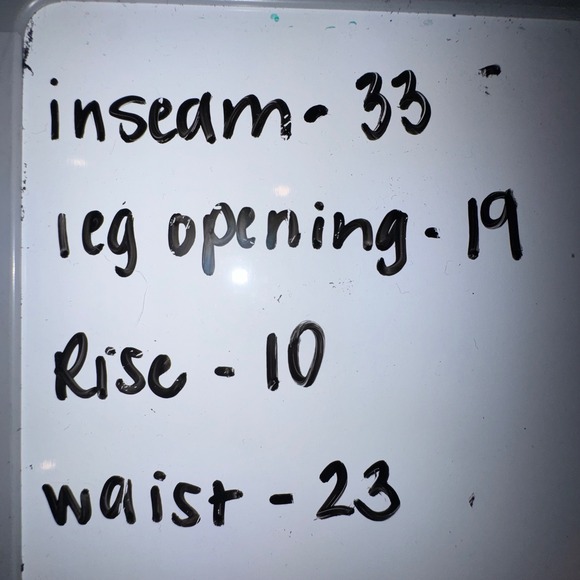 inseam - 33
leg opening - 19
Rise - 10
waist - 23